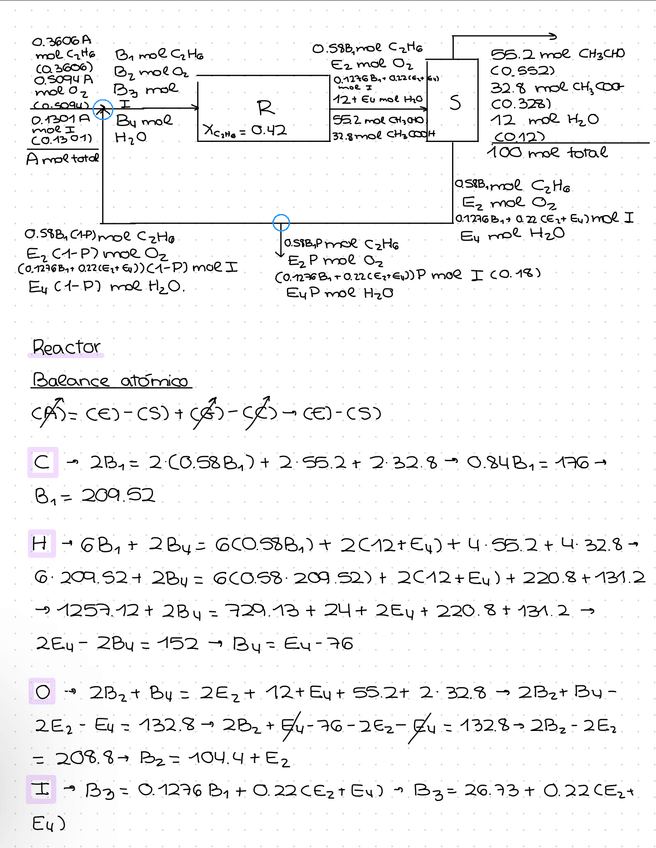 0.3606A
mol C₂H₆
(0.3606)
0.5094A
mol O₂
(0.5094)
0.1301A
mol I
(0.1301)
A mol total
B₁ mol C₂H₆
B₂ mol O₂
B₃ mol
I
B₄ mol
H₂O
R
X C₂H₆ = 0.42
0.58B₁ mol C₂H₆
E₂ mol O₂
0.1276B₁ + 0.22(E₂+E₄)
mol I
12+E₄ mol H₂O
55.2 mol CH₃CHO
32.8 mol CH₃COOH
S
55.2 mol CH₃CHO
(0.552)
32.8 mol CH₃COO-
(0.328)
12 mol H₂O
(0.12)
100 mol total
0.58B₁ mol C₂H₆
E₂ mol O₂
0.1276B₁ + 0.22(E₂+E₄) mol I
E₄ mol H₂O
0.58B₁(1-P) mol C₂H₆
E₂(1-P) mol O₂
(0.1276B₁ + 0.22(E₂+E₄))(1-P) mol I
E₄(1-P) mol H₂O.
0.58B₁P mol C₂H₆
E₂P mol O₂
(0.1276B₁ + 0.22(E₂+E₄))P mol I (0.18)
E₄P mol H₂O
Reactor
Balance atómico
(A) = (E) - (S) + (G) - (C) → (E) - (S)
C → 2B₁ = 2·(0.58B₁) + 2·55.2 + 2·32.8 → 0.84B₁ = 176 →
B₁ = 209.52
H → 6B₁ + 2B₄ = 6(0.58B₁) + 2(12+E₄) + 4·55.2 + 4·32.8 →
6·209.52 + 2B₄ = 6(0.58·209.52) + 2(12+E₄) + 220.8 + 131.2
→ 1257.12 + 2B₄ = 729.13 + 24 + 2E₄ + 220.8 + 131.2 →
2E₄ - 2B₄ = 152 → B₄ = E₄ - 76
O → 2B₂ + B₄ = 2E₂ + 12 + E₄ + 55.2 + 2·32.8 → 2B₂ + B₄ -
2E₂ - E₄ = 132.8 → 2B₂ + E₄ - 76 - 2E₂ - E₄ = 132.8 → 2B₂ - 2E₂
= 208.8 → B₂ = 104.4 + E₂
I → B₃ = 0.1276B₁ + 0.22(E₂+E₄) → B₃ = 26.73 + 0.22(E₂+
E₄)